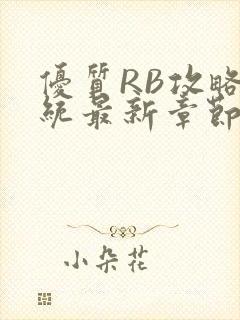 優質RB攻略
統最新章節
小朵花